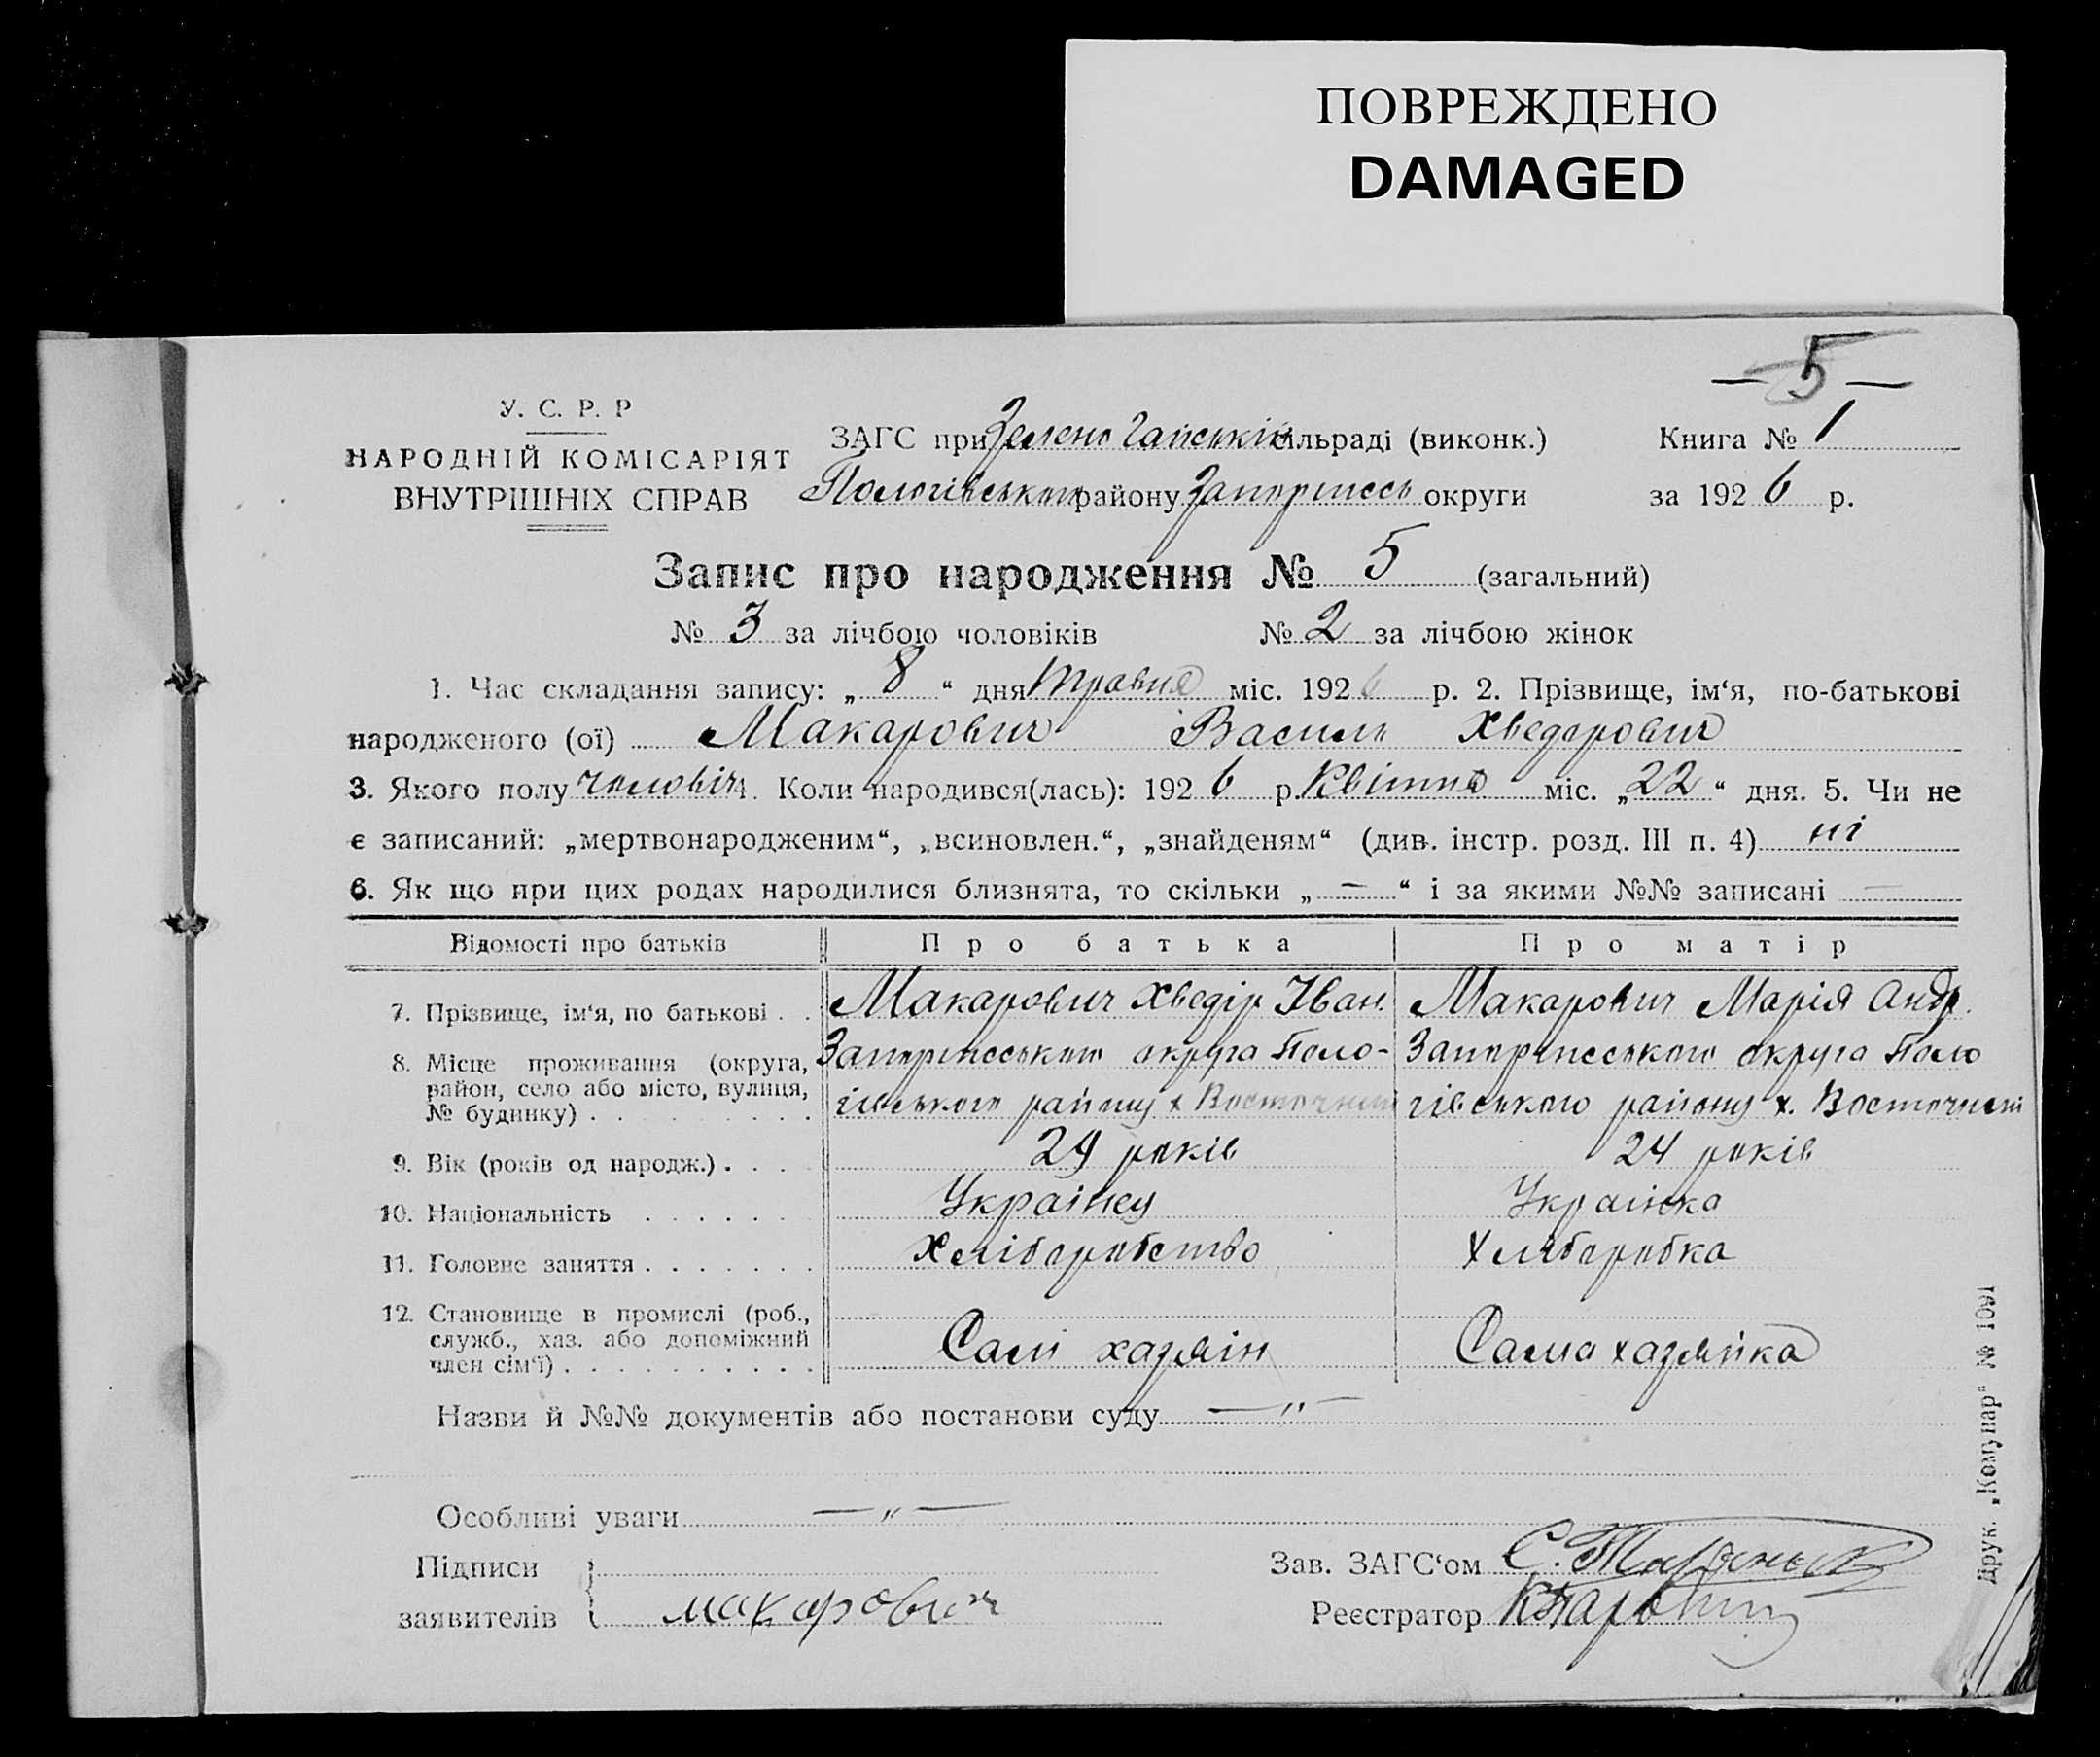 ПОВРЕЖДЕНО
DAMAGED
— 5 —
У. С. Р. Р
НАРОДНІЙ КОМІСАРІЯТ
ВНУТРІШНІХ СПРАВ
ЗАГС при Зелено Гайській сільраді (виконк.)
Пологівського району Запоріжсь округи
Книга № 1
за 1926 р.
Запис про народження № 5 (загальний)
№ 3 за лічбою чоловіків № 2 за лічбою жінок
1. Час складання запису: „ 8 “ дня травня міс. 1926 р. 2. Прізвище, ім‘я, по-батькові
народженого (ої) Макарович Василь Хведорович
3. Якого полу чоловіч 4. Коли народився(лась): 1926 р. Квітня міс. „ 22 “ дня. 5. Чи не
є записаний: „мертвонародженим“, „всиновлен.“, „знайденям“ (див. інстр. розд. III п. 4) ні
6. Як що при цих родах народилися близнята, то скільки „ — “ і за якими №№ записані —
Відомості про батьків Про батька Про матір
7. Прізвище, ім‘я, по батькові . . Макарович Хведір Іван. Макарович Марія Андр.
8. Місце проживання (округа, район, село або місто, вулиця, № будинку) . . . . . . . . .
Запоріжського округа Поло-
гівського району х Восточний
Запоріжського округа Поло
гівського району х. Восточний
9. Вік (років од народж.) . . . 24 років 24 років
10. Національність . . . . . . Українець Українка
11. Головне заняття . . . . . . . Хліборобство Хліборобка
12. Становище в промислі (роб.,
служб., хаз. або допоміжний
член сім‘ї) . . . . . . . . . . Сам хазяїн Сама хазяйка
Назви й №№ документів або постанови суду — „ —
Особливі уваги — „ —
Підписи
заявителів макарович
Зав. ЗАГС‘ом
Реєстратор
Друк. „Комунар“ № 1091